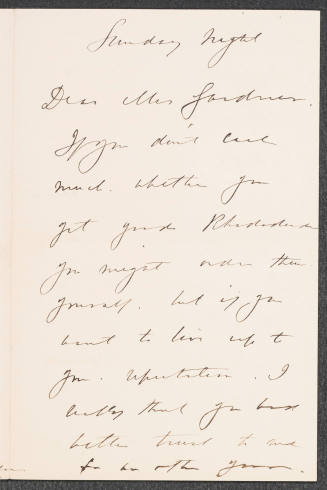 Sunday Night
Dear Mrs Gardner,
If you don't care
much whether you
get good Rhododendr
you might order them
yourself. but if you
want to live up to
your reputation. I
really think you had
better trust to me
for another year.